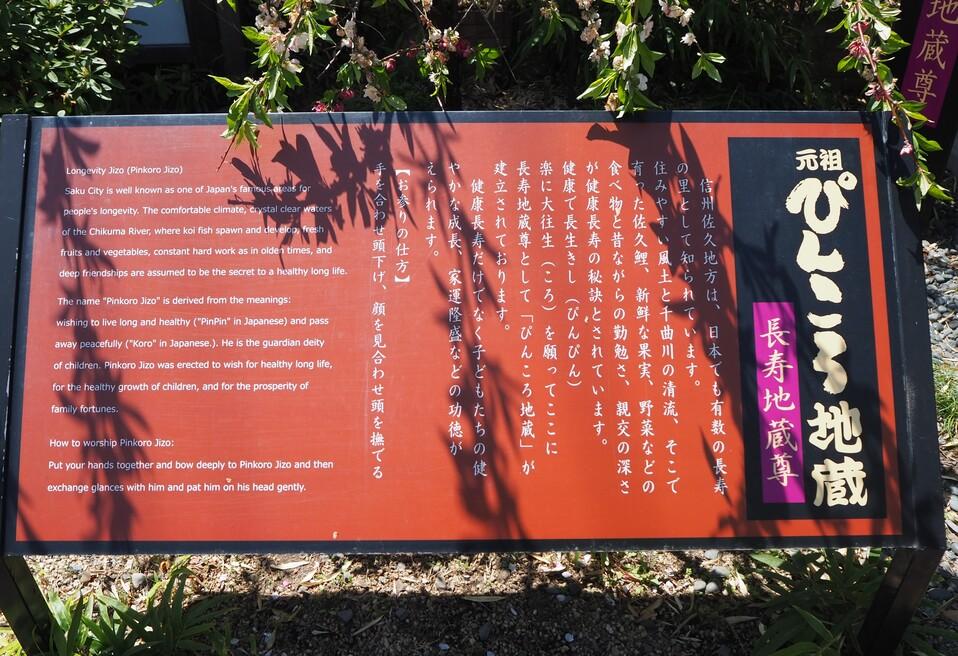 Longevity Jizo (Pinkoro Jizo)
Saku City is well known as one of Japan's famous areas for
people's longevity. The comfortable climate, crystal clear waters
of the Chikuma River, where koi fish spawn and develop, fresh
fruits and vegetables, constant hard work as in olden times, and
deep friendships are assumed to be the secret to a healthy long life.
The name "Pinkoro Jizo" is derived from the meanings:
wishing to live long and healthy ("PinPin" in Japanese) and pass
away peacefully ("Koro" in Japanese.). He is the guardian deity
of children. Pinkoro Jizo was erected to wish for healthy long life,
for the healthy growth of children, and for the prosperity of
family fortunes.
How to worship Pinkoro Jizo:
Put your hands together and bow deeply to Pinkoro Jizo and then
exchange glances with him and pat him on his head gently.
元祖
ぴんころ地蔵
長寿地蔵尊
信州佐久地方は、日本でも有数の長寿
の里として知られています。
住みやすい風土と千曲川の清流、そこで
育った佐久鯉、新鮮な果実、野菜などの
食べ物と昔ながらの勤勉さ、親交の深さ
が健康長寿の秘訣とされています。
健康で長生きし（ぴんぴん）
楽に大往生（ころ）を願ってここに
長寿地蔵尊として「ぴんころ地蔵」が
建立されております。
健康長寿だけでなく子どもたちの健
やかな成長、家運隆盛などの功徳が
えられます。
【お参りの仕方】
手を合わせ頭下げ、顔を見合わせ頭を撫てる
地蔵尊